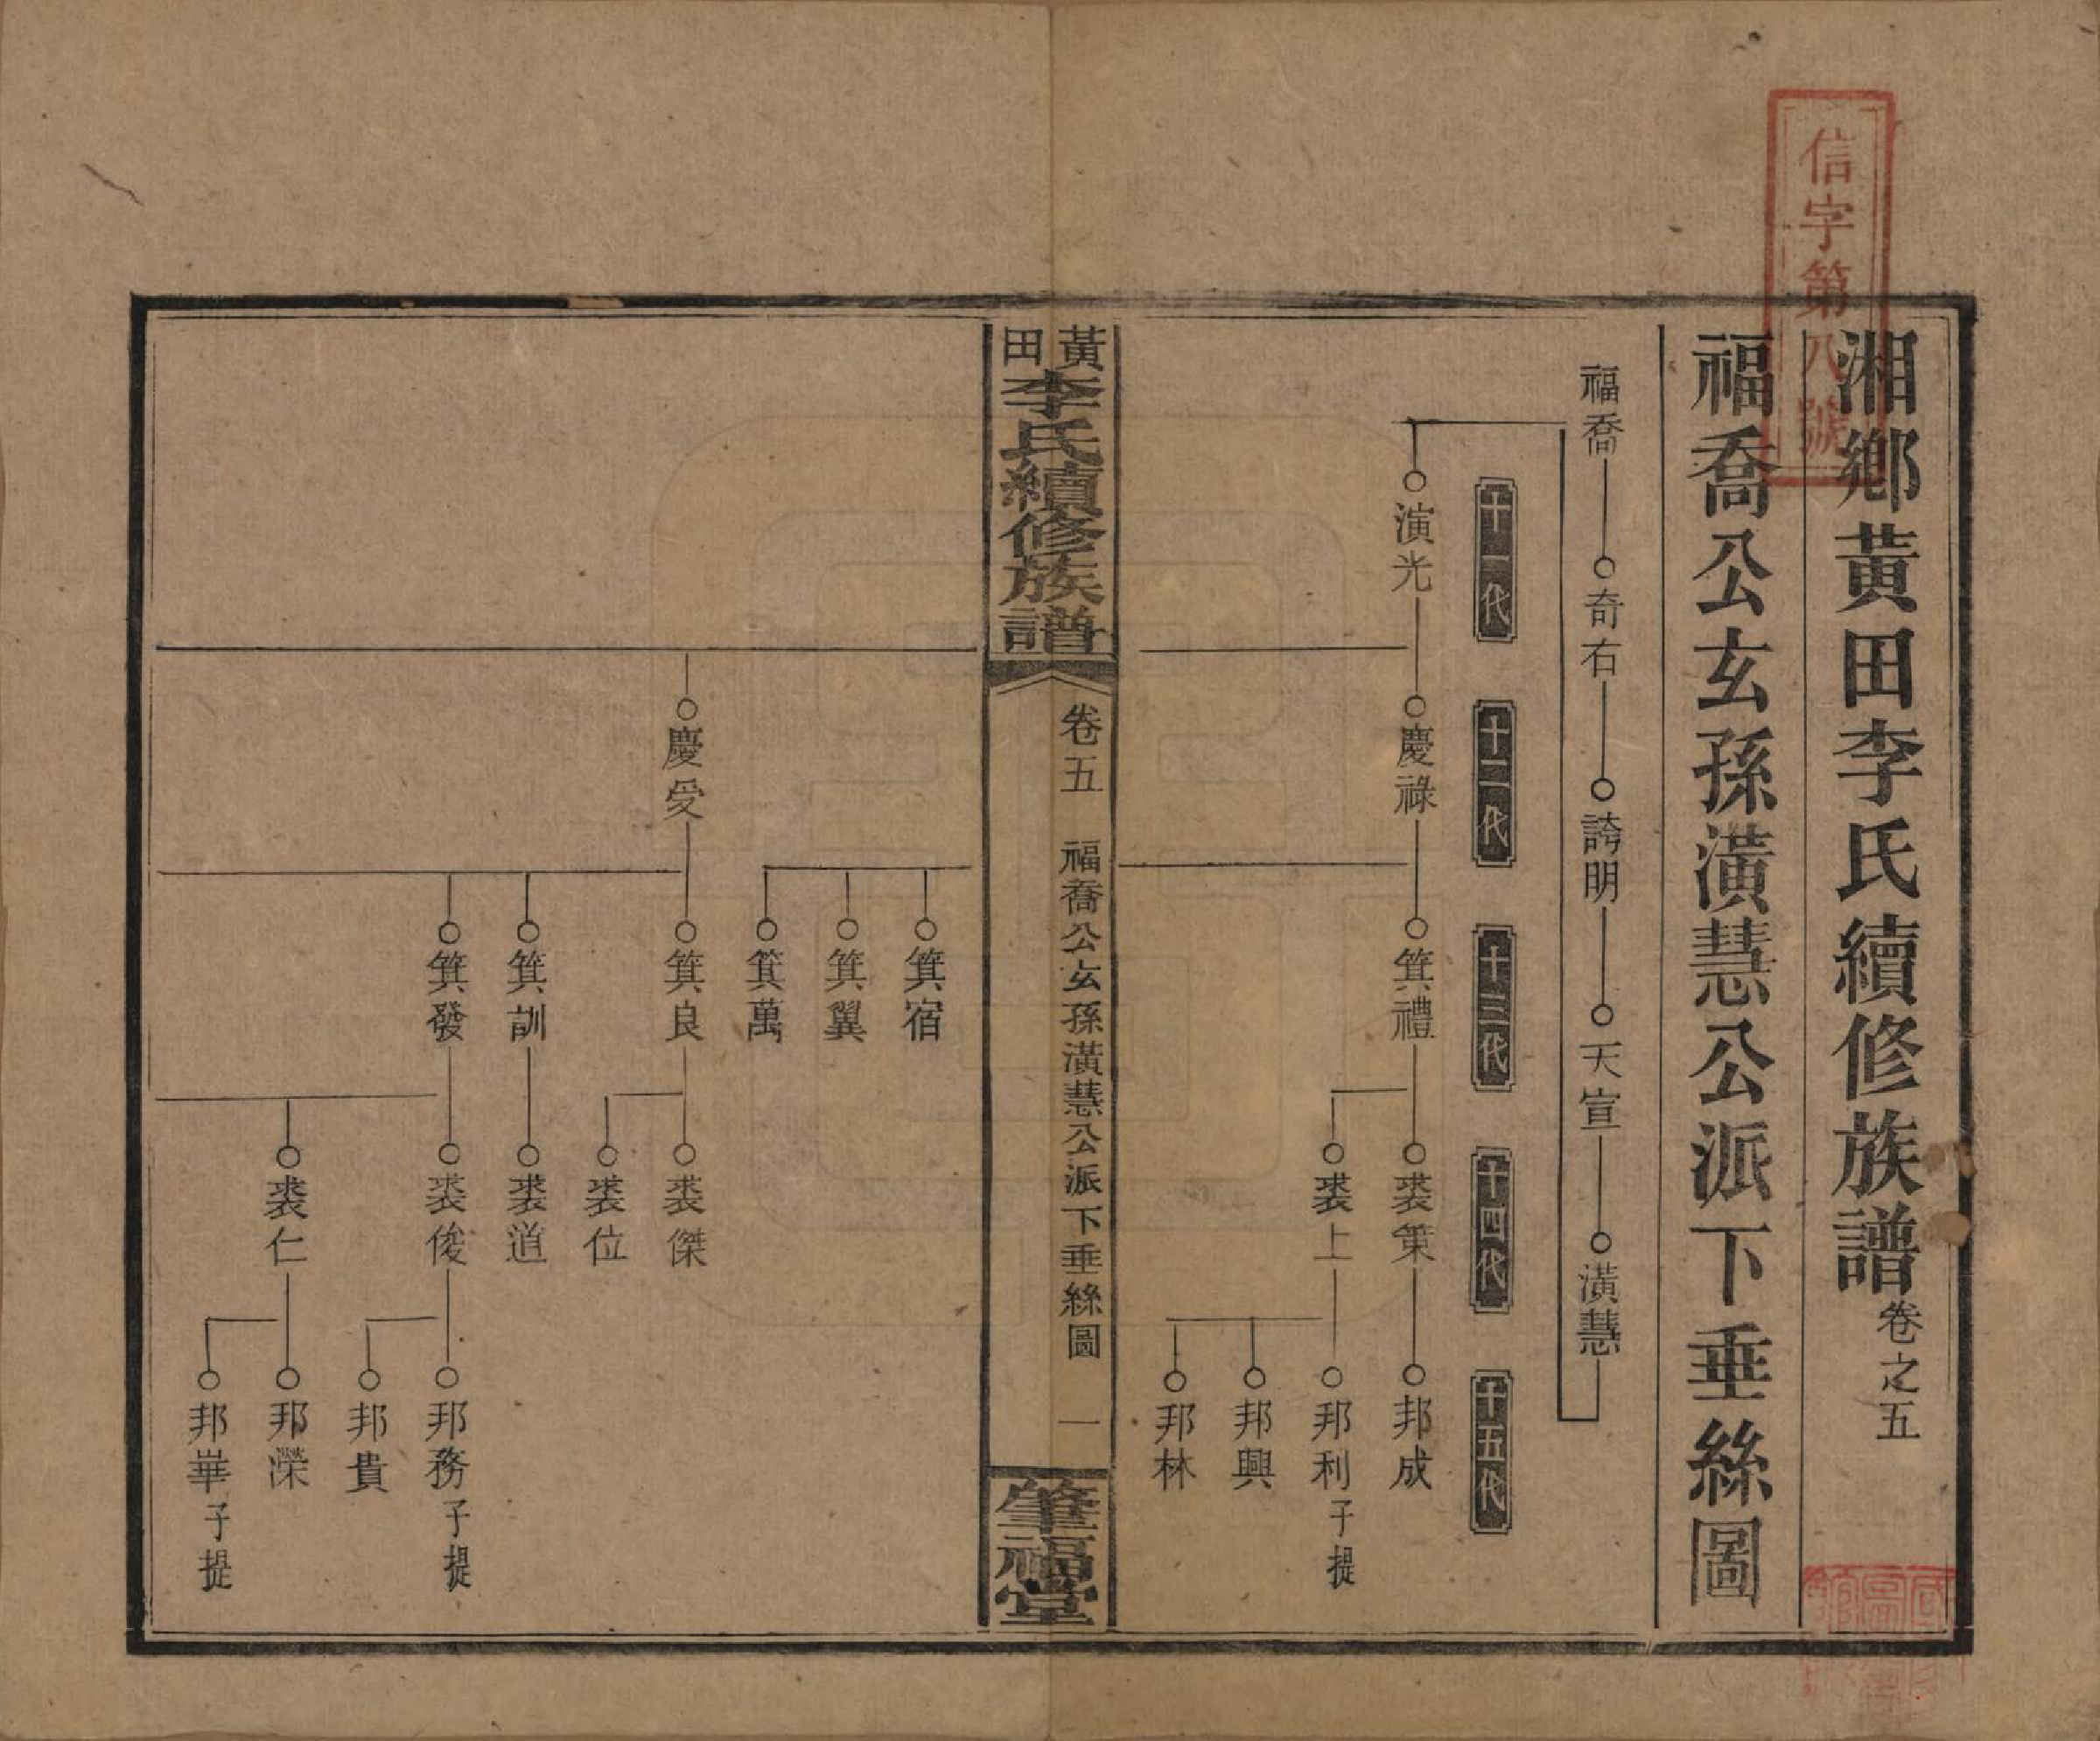 信字第八號
湘鄉黃田李氏續修族譜卷之五
福喬公玄孫潢慧公派下垂絲圖
福喬 奇右 誇明 天宣 潢慧
十一代 十二代 十三代 十四代 十五代
演光 慶祿 箕禮 裘策 邦成
裘上 邦利子提
邦興
邦林
黃田李氏續修族譜 卷五 福喬公玄孫潢慧公派下垂絲圖 一 肇福堂
箕宿
箕翼
箕萬
慶受 箕良 裘傑
裘位
箕訓 裘道
箕發 裘俊 邦務子提
邦貴
裘仁 邦榮
邦華子提